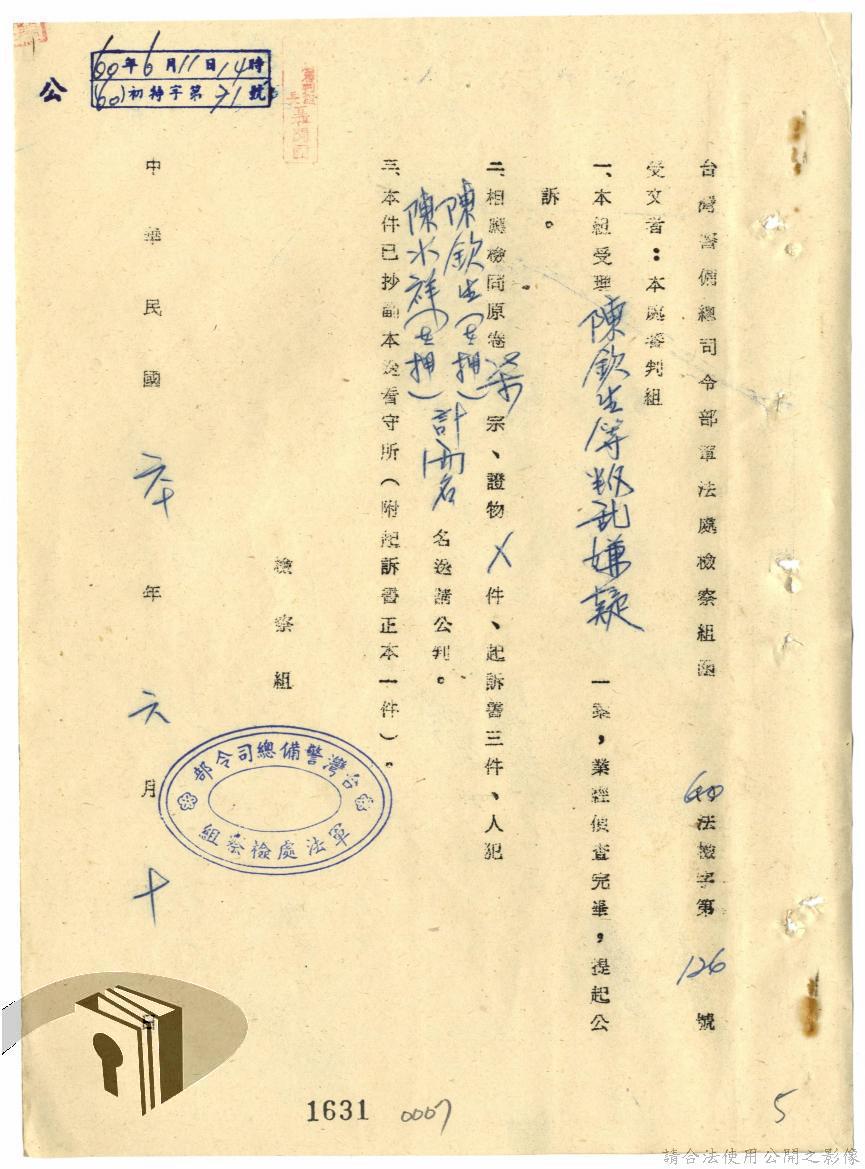 台灣警備總司令部軍法處檢察組函
(60)法檢字第126號
受文者：本處審判組
一、本組受理陳欽生等叛乱嫌疑一案，業經偵查完畢，提起公
訴。
二、相應檢同原卷宗、證物X件、起訴書三件、人犯
陳欽生(在押)
陳水祥(在押)計兩名名送請公判。
三、本件已抄副本送看守所(附起訴書正本一件)。
檢察組
台灣警備總司令部
軍法處檢察組
中華民國六十年六月十日
60年6月11日14時
(60)初特字第71號
公
1631
0007
5
請合法使用公開之影像